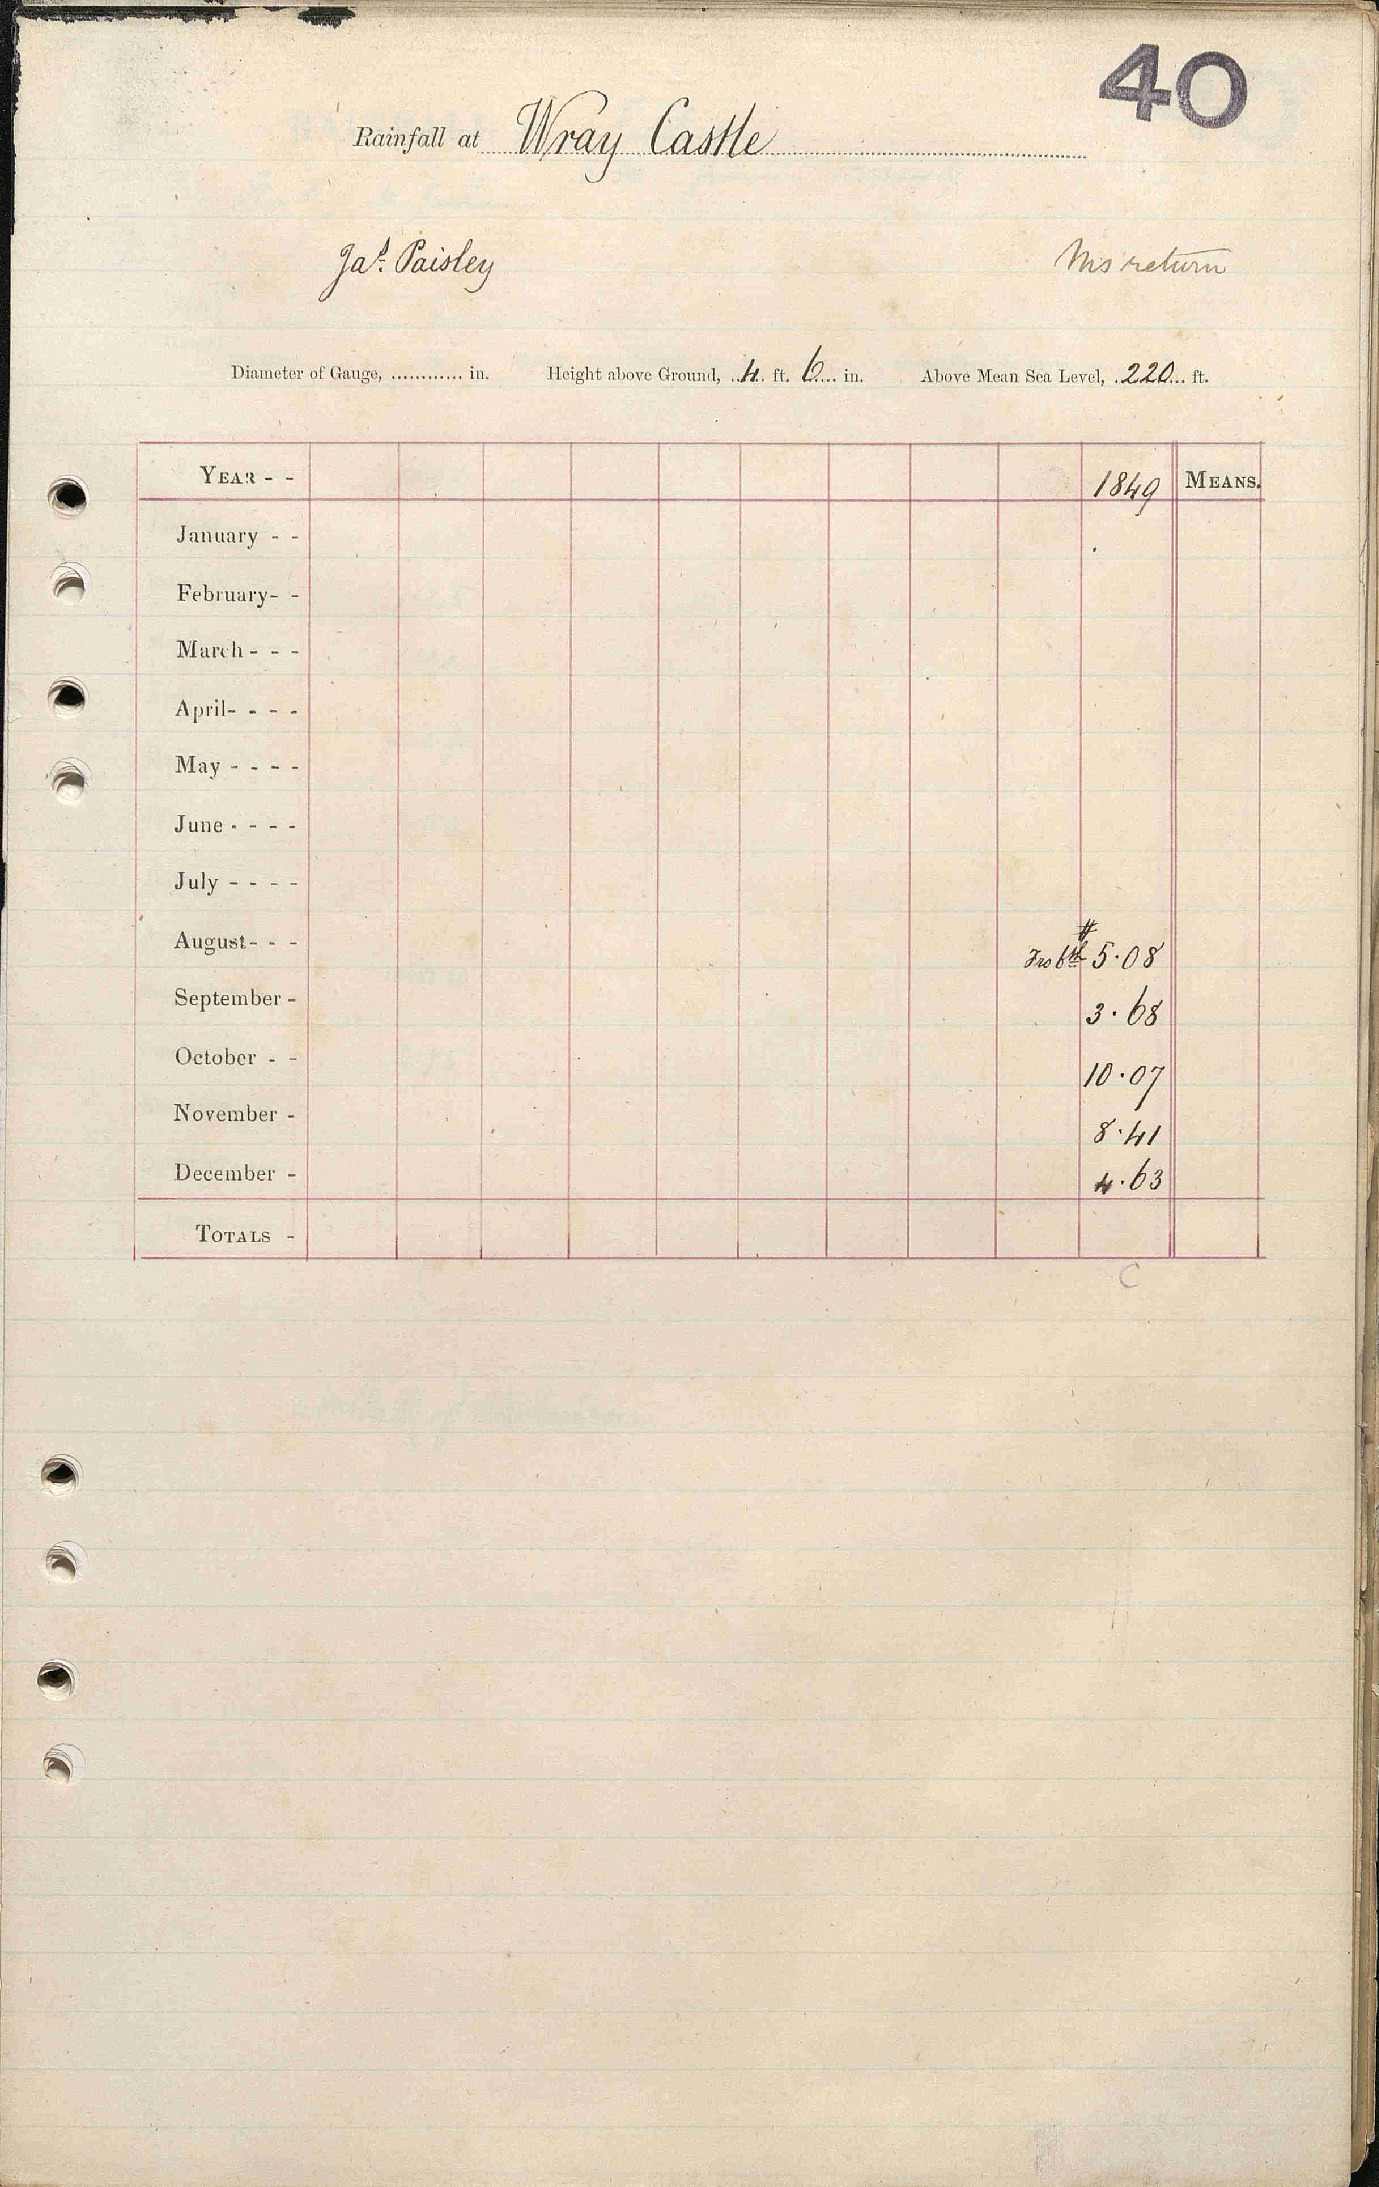 40
Rainfall at Wray Castle
Jas. Paisley
Ms return
Diameter of Gauge, ............ in. Height above Ground, 4 ft. 6 in. Above Mean Sea Level, 220 ft.
YEAR - - 1849 MEANS.
January - -
February - -
March - - -
April - - - -
May - - - -
June - - - -
July - - - -
#
August - - - Fro 6th 5.08
September - 3.68
October - - 10.07
November - 8.41
December - 4.63
TOTALS -
C